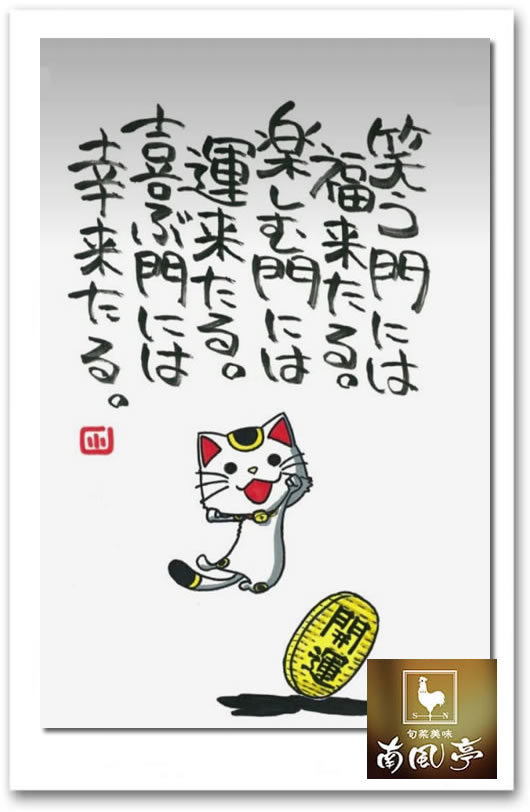 笑う門には
福来たる。
楽しむ門には
運来たる。
喜ぶ門には
幸来たる。
開運
S N
旬菜美味
南風亭